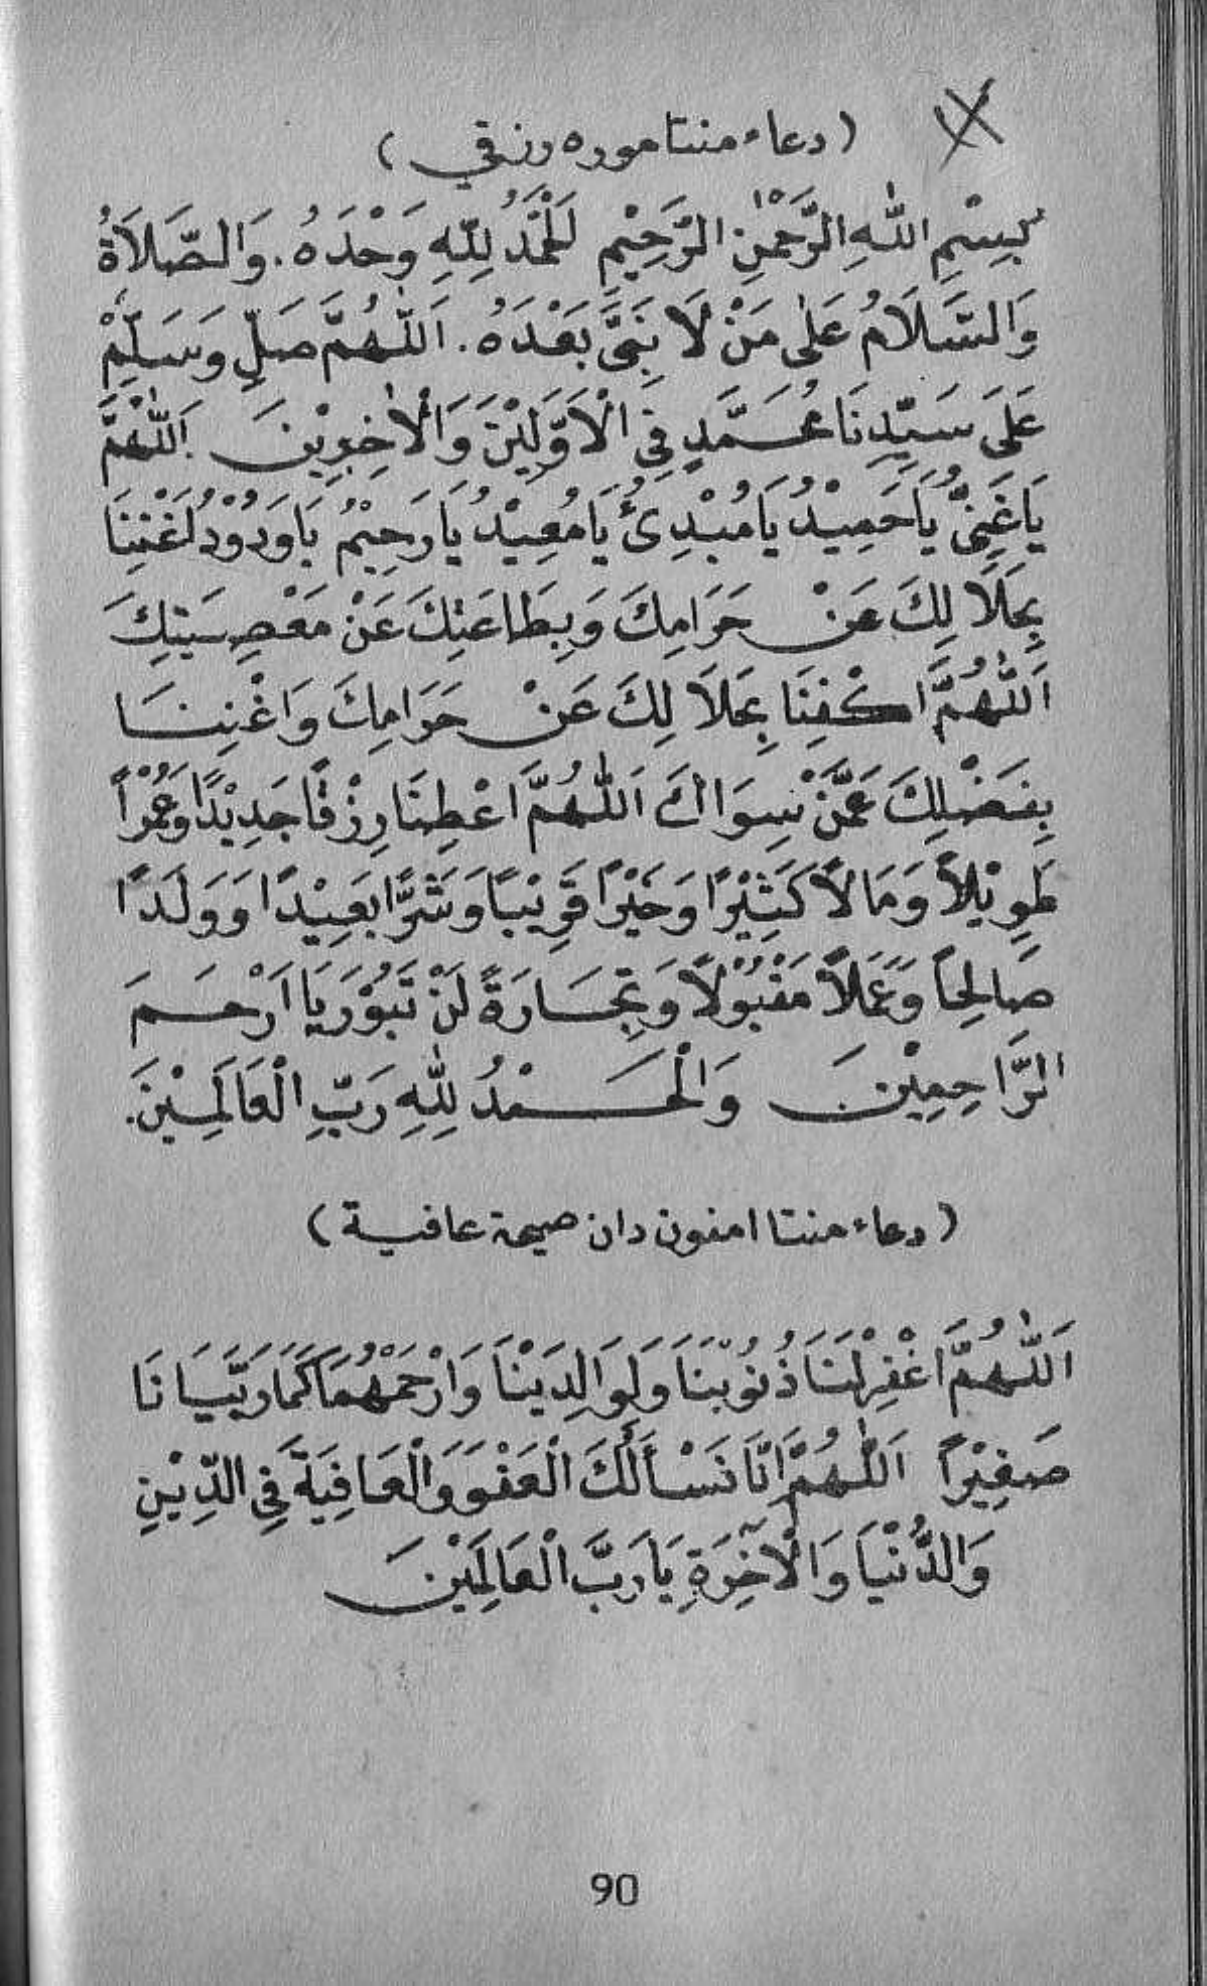 (دعاء منتا موره رزقي)
بِسْمِ اللهِ الرَّحْمٰنِ الرَّحِيْمِ اَلْحَمْدُ لِلّٰهِ وَحْدَهُ. وَالصَّلاَةُ
وَالسَّلَامُ عَلٰى مَنْ لَا نَبِىَّ بَعْدَهُ. اَللّٰهُمَّ صَلِّ وَسَلِّمْ
عَلَى سَيِّدِنَا مُحَمَّدٍ فِى الْاَوَّلِيْنَ وَالْاٰخِرِيْنَ اَللّٰهُمَّ
يَا غَنِىُّ يَا حَمِيْدُ يَا مُبْدِئُ يَا مُعِيْدُ يَا رَحِيْمُ يَا وَدُوْدُ اَغْنِنَا
بِحَلَالِكَ عَنْ حَرَامِكَ وَبِطَاعَتِكَ عَنْ مَعْصِيَتِكَ
اَللّٰهُمَّ اكْفِنَا بِحَلاَلِكَ عَنْ حَرَامِكَ وَاَغْنِنَا
بِفَضْلِكَ عَمَّنْ سِوَاكَ اَللّٰهُمَّ اَعْطِنَا رِزْقًا جَدِيْدًا وَعُمْرًا
طَوِيْلاً وَمَالاً كَثِيْرًا وَخَيْرًا قَرِيْبًا وَشَرًّا بَعِيْدًا وَوَلَدًا
صَالِحًا وَعَمَلاً مَقْبُوْلًا وَتِجَارَةً لَنْ تَبُوْرَ يَا اَرْحَمَ
الرَّاحِمِيْنَ وَالْحَمْدُ لِلّٰهِ رَبِّ الْعَالَمِيْنَ.
(دعاء منتا امفون دان صيحة عافية)
اَللّٰهُمَّ اغْفِرْلَنَا ذُنُوْبَنَا وَلِوَالِدَيْنَا وَارْحَمْهُمَا كَمَا رَبَّيَانَا
صَغِيْرًا اَللّٰهُمَّ اِنَّا نَسْأَلُكَ الْعَفْوَ وَالْعَافِيَةَ فِى الدِّيْنِ
وَالدُّنْيَا وَالْآخِرَةِ يَا رَبَّ الْعَالَمِيْنَ
90